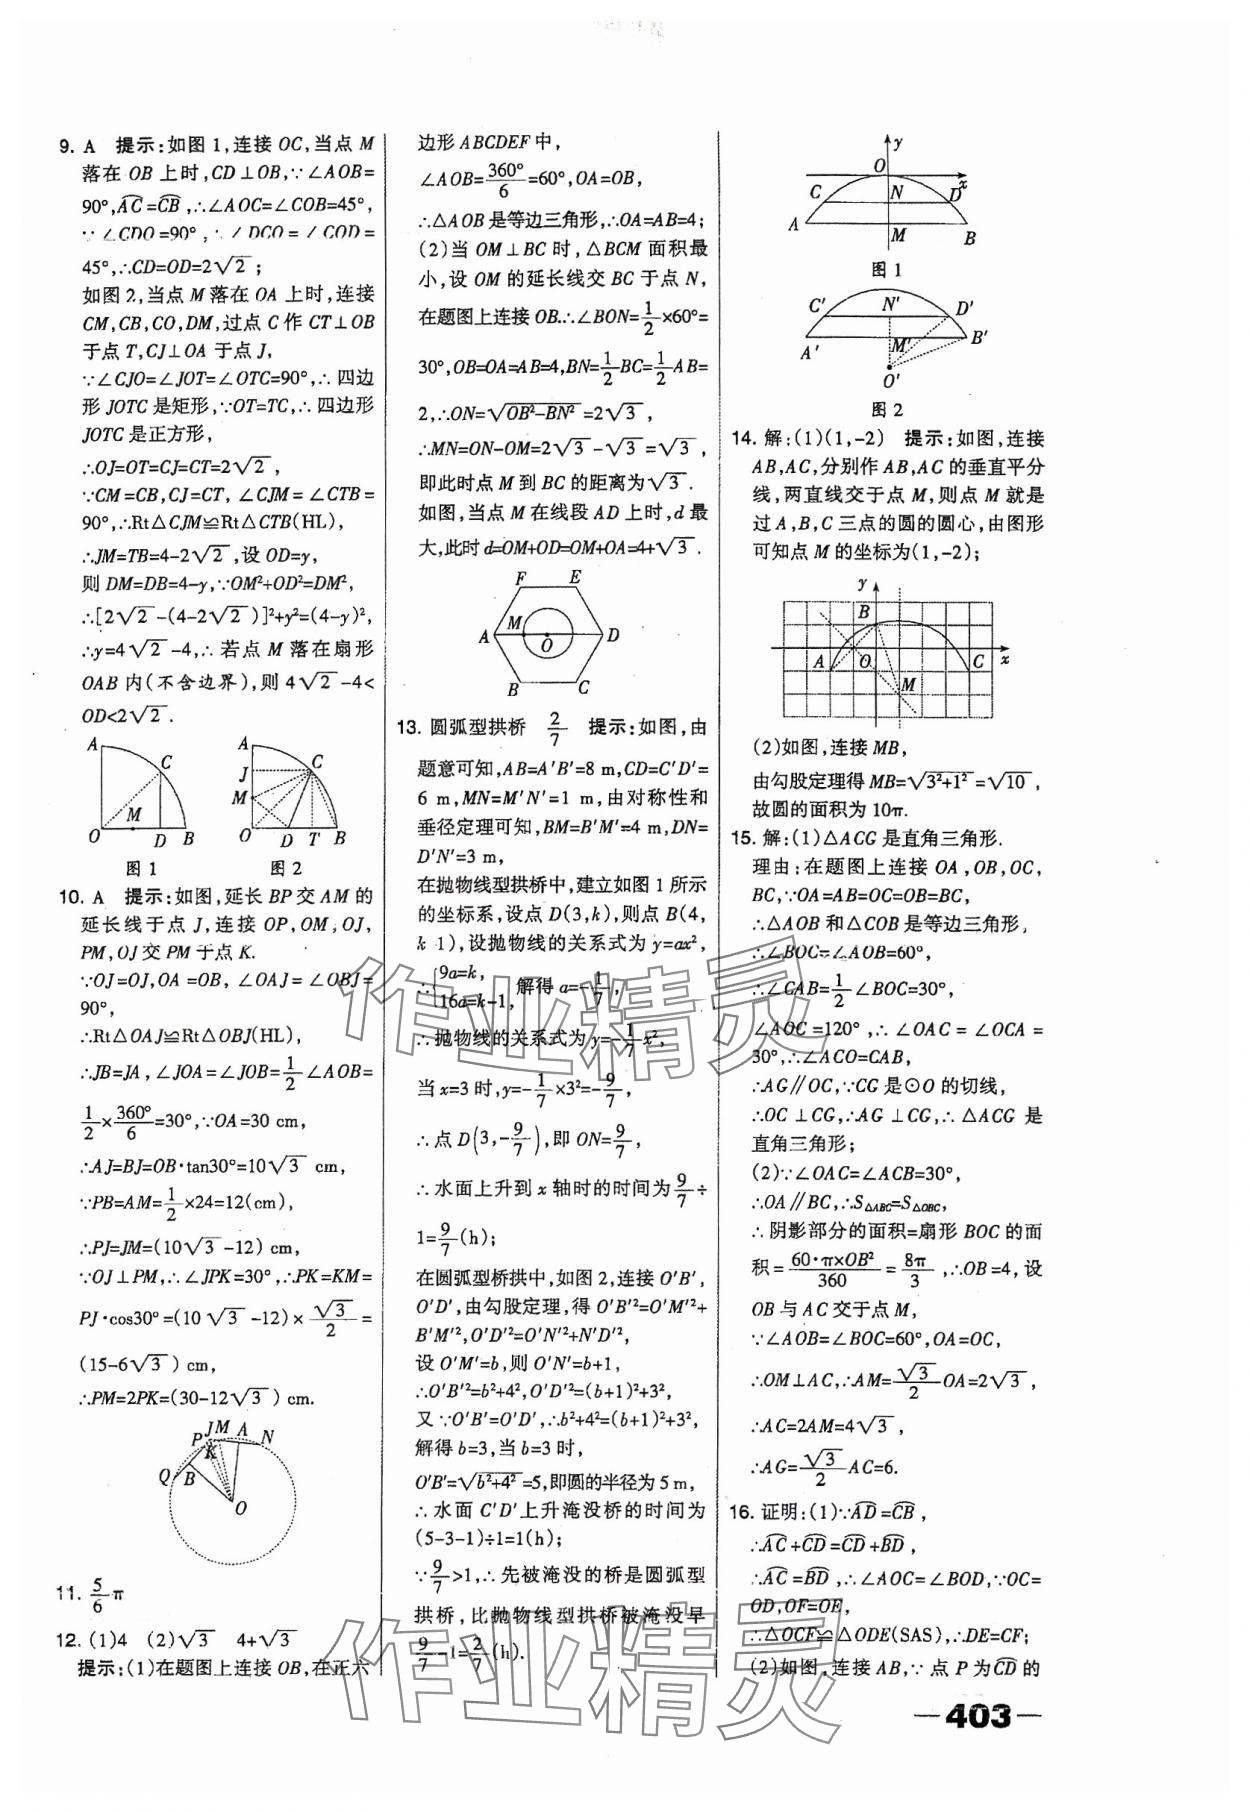 9. A 提示:如图1,连接OC,当点M
落在OB上时,CD⊥OB,∵∠AOB=
90°,A͡C=C͡B,∴∠AOC=∠COB=45°,
∵∠CDO=90°,∴∠DCO=∠COD=
45°,∴CD=OD=2√2;
如图2,当点M落在OA上时,连接
CM,CB,CO,DM,过点C作CT⊥OB
于点T,CJ⊥OA于点J,
∵∠CJO=∠JOT=∠OTC=90°,∴四边
形JOTC是矩形,∵OT=TC,∴四边形
JOTC是正方形,
∴OJ=OT=CJ=CT=2√2,
∵CM=CB,CJ=CT,∠CJM=∠CTB=
90°,∴Rt△CJM≌Rt△CTB(HL),
∴JM=TB=4-2√2,设OD=y,
则DM=DB=4-y,∵OM²+OD²=DM²,
∴[2√2-(4-2√2)]²+y²=(4-y)²,
∴y=4√2-4,∴若点M落在扇形
OAB内(不含边界),则4√2-4<
OD<2√2.
A C M O D B
图1
A J C M O D T B
图2
10. A 提示:如图,延长BP交AM的
延长线于点J,连接OP,OM,OJ,
PM,OJ交PM于点K.
∵OJ=OJ,OA=OB,∠OAJ=∠OBJ=
90°,
∴Rt△OAJ≌Rt△OBJ(HL),
∴JB=JA,∠JOA=∠JOB=1/2∠AOB=
1/2×360°/6=30°,∵OA=30 cm,
∴AJ=BJ=OB·tan30°=10√3 cm,
∵PB=AM=1/2×24=12(cm),
∴PJ=JM=(10√3-12) cm,
∵OJ⊥PM,∴∠JPK=30°,∴PK=KM=
PJ·cos30°=(10√3-12)×√3/2=
(15-6√3) cm,
∴PM=2PK=(30-12√3) cm.
P J M A N K Q B O
11. 5/6π
12. (1)4 (2)√3 4+√3
提示:(1)在题图上连接OB,在正六
边形ABCDEF中,
∠AOB=360°/6=60°,OA=OB,
∴△AOB是等边三角形,∴OA=AB=4;
(2)当OM⊥BC时,△BCM面积最
小,设OM的延长线交BC于点N,
在题图上连接OB.∴∠BON=1/2×60°=
30°,OB=OA=AB=4,BN=1/2BC=1/2AB=
2,∴ON=√(OB²-BN²)=2√3,
∴MN=ON-OM=2√3-√3=√3,
即此时点M到BC的距离为√3.
如图,当点M在线段AD上时,d最
大,此时d=OM+OD=OM+OA=4+√3.
F E A M O D B C
13. 圆弧型拱桥 2/7 提示:如图,由
题意可知,AB=A′B′=8 m,CD=C′D′=
6 m,MN=M′N′=1 m,由对称性和
垂径定理可知,BM=B′M′=4 m,DN=
D′N′=3 m,
在抛物线型拱桥中,建立如图1所示
的坐标系,设点D(3,k),则点B(4,
k 1),设抛物线的关系式为y=ax²,
∴{9a=k,
16a=k-1, 解得a=-1/7,
∴抛物线的关系式为y=-1/7x²,
当x=3时,y=-1/7×3²=-9/7,
∴点D(3,-9/7),即ON=9/7,
∴水面上升到x轴时的时间为9/7÷
1=9/7(h);
在圆弧型桥拱中,如图2,连接O′B′,
O′D′,由勾股定理,得O′B′²=O′M′²+
B′M′²,O′D′²=O′N′²+N′D′²,
设O′M′=b,则O′N′=b+1,
∴O′B′²=b²+4²,O′D′²=(b+1)²+3²,
又∵O′B′=O′D′,∴b²+4²=(b+1)²+3²,
解得b=3,当b=3时,
O′B′=√(b²+4²)=5,即圆的半径为5 m,
∴水面C′D′上升淹没桥的时间为
(5-3-1)÷1=1(h);
∵9/7>1,∴先被淹没的桥是圆弧型
拱桥,比抛物线型拱桥被淹没早
9/7-1=2/7(h).
y O C N D x A M B
图1
C′ N′ D′ A′ M′ B′ O′
图2
14. 解:(1)(1,-2) 提示:如图,连接
AB,AC,分别作AB,AC的垂直平分
线,两直线交于点M,则点M就是
过A,B,C三点的圆的圆心,由图形
可知点M的坐标为(1,-2);
y B A O C x M
(2)如图,连接MB,
由勾股定理得MB=√(3²+1²)=√10,
故圆的面积为10π.
15. 解:(1)△ACG是直角三角形.
理由:在题图上连接OA,OB,OC,
BC,∵OA=AB=OC=OB=BC,
∴△AOB和△COB是等边三角形,
∴∠BOC=∠AOB=60°,
∴∠CAB=1/2∠BOC=30°,
∠AOC=120°,∴∠OAC=∠OCA=
30°,∴∠ACO=CAB,
∴AG∥OC,∵CG是⊙O的切线,
∴OC⊥CG,∴AG⊥CG,∴△ACG是
直角三角形;
(2)∵∠OAC=∠ACB=30°,
∴OA∥BC,∴S△ABC=S△OBC,
∴阴影部分的面积=扇形BOC的面
积=60·π×OB²/360=8π/3,∴OB=4,设
OB与AC交于点M,
∵∠AOB=∠BOC=60°,OA=OC,
∴OM⊥AC,∴AM=√3/2OA=2√3,
∴AC=2AM=4√3,
∴AG=√3/2AC=6.
16. 证明:(1)∵A͡D=C͡B,
∴A͡C+C͡D=C͡D+B͡D,
∴A͡C=B͡D,∴∠AOC=∠BOD,∵OC=
OD,OF=OE,
∴△OCF≌△ODE(SAS),∴DE=CF;
(2)如图,连接AB,∵点P为C͡D的
作业精灵
作业精灵
—403—